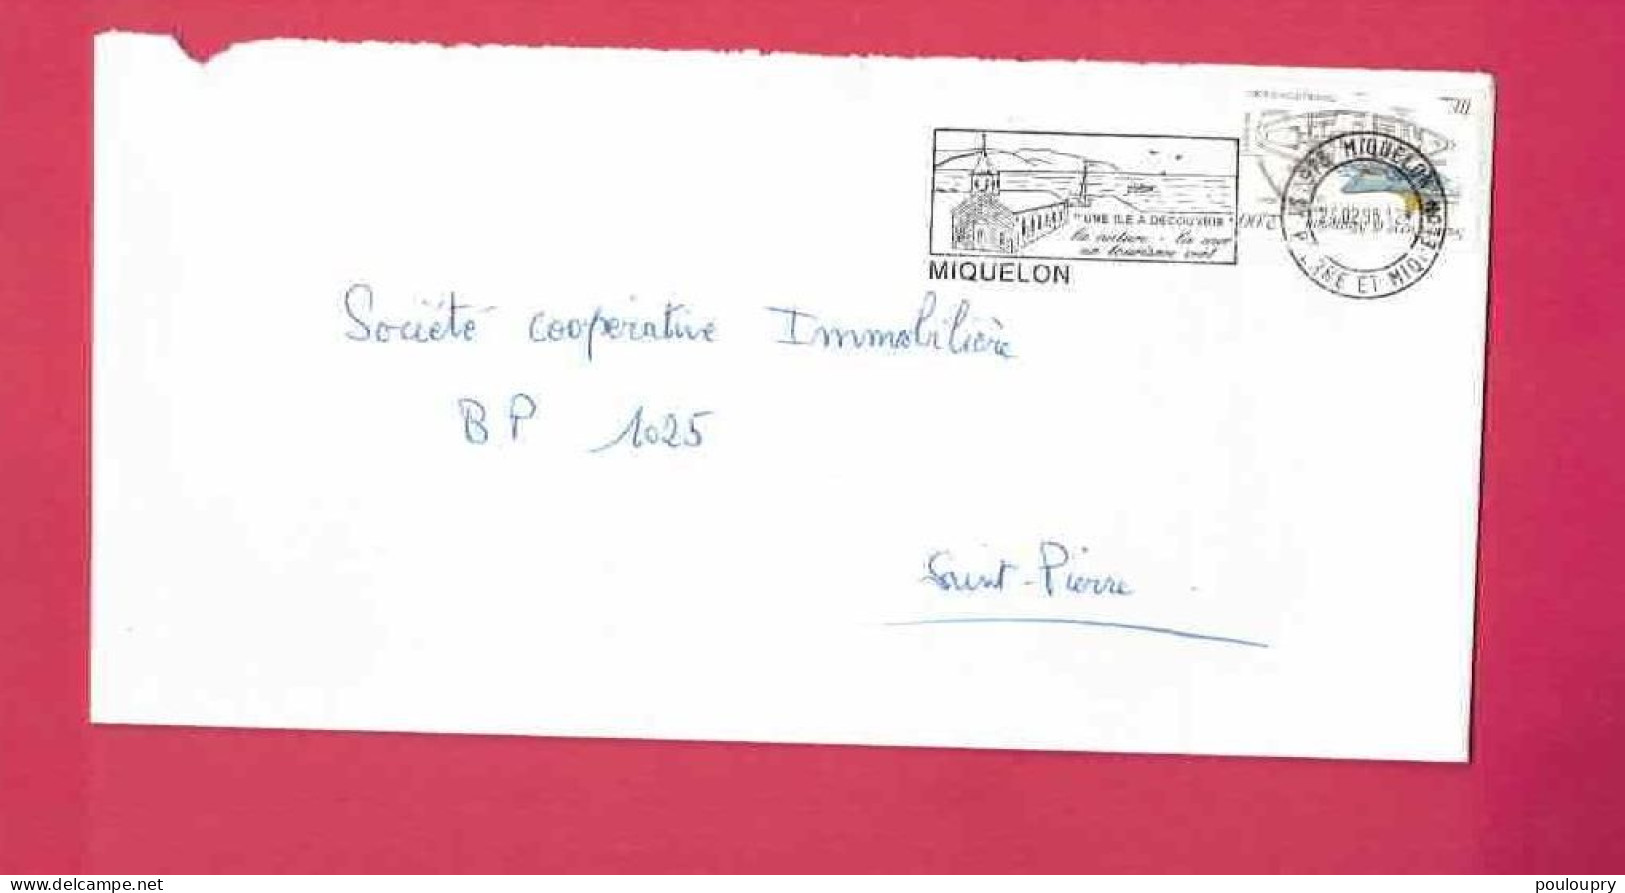 "UNE ILE A DECOUVRIR"
la nature - la mer
un tourisme vert
MIQUELON
MIQUELON
ET MIQUELON
2,00
Société coopérative Immobilière
BP 1025
Saint-Pierre
www.delcampe.net
pouloupry